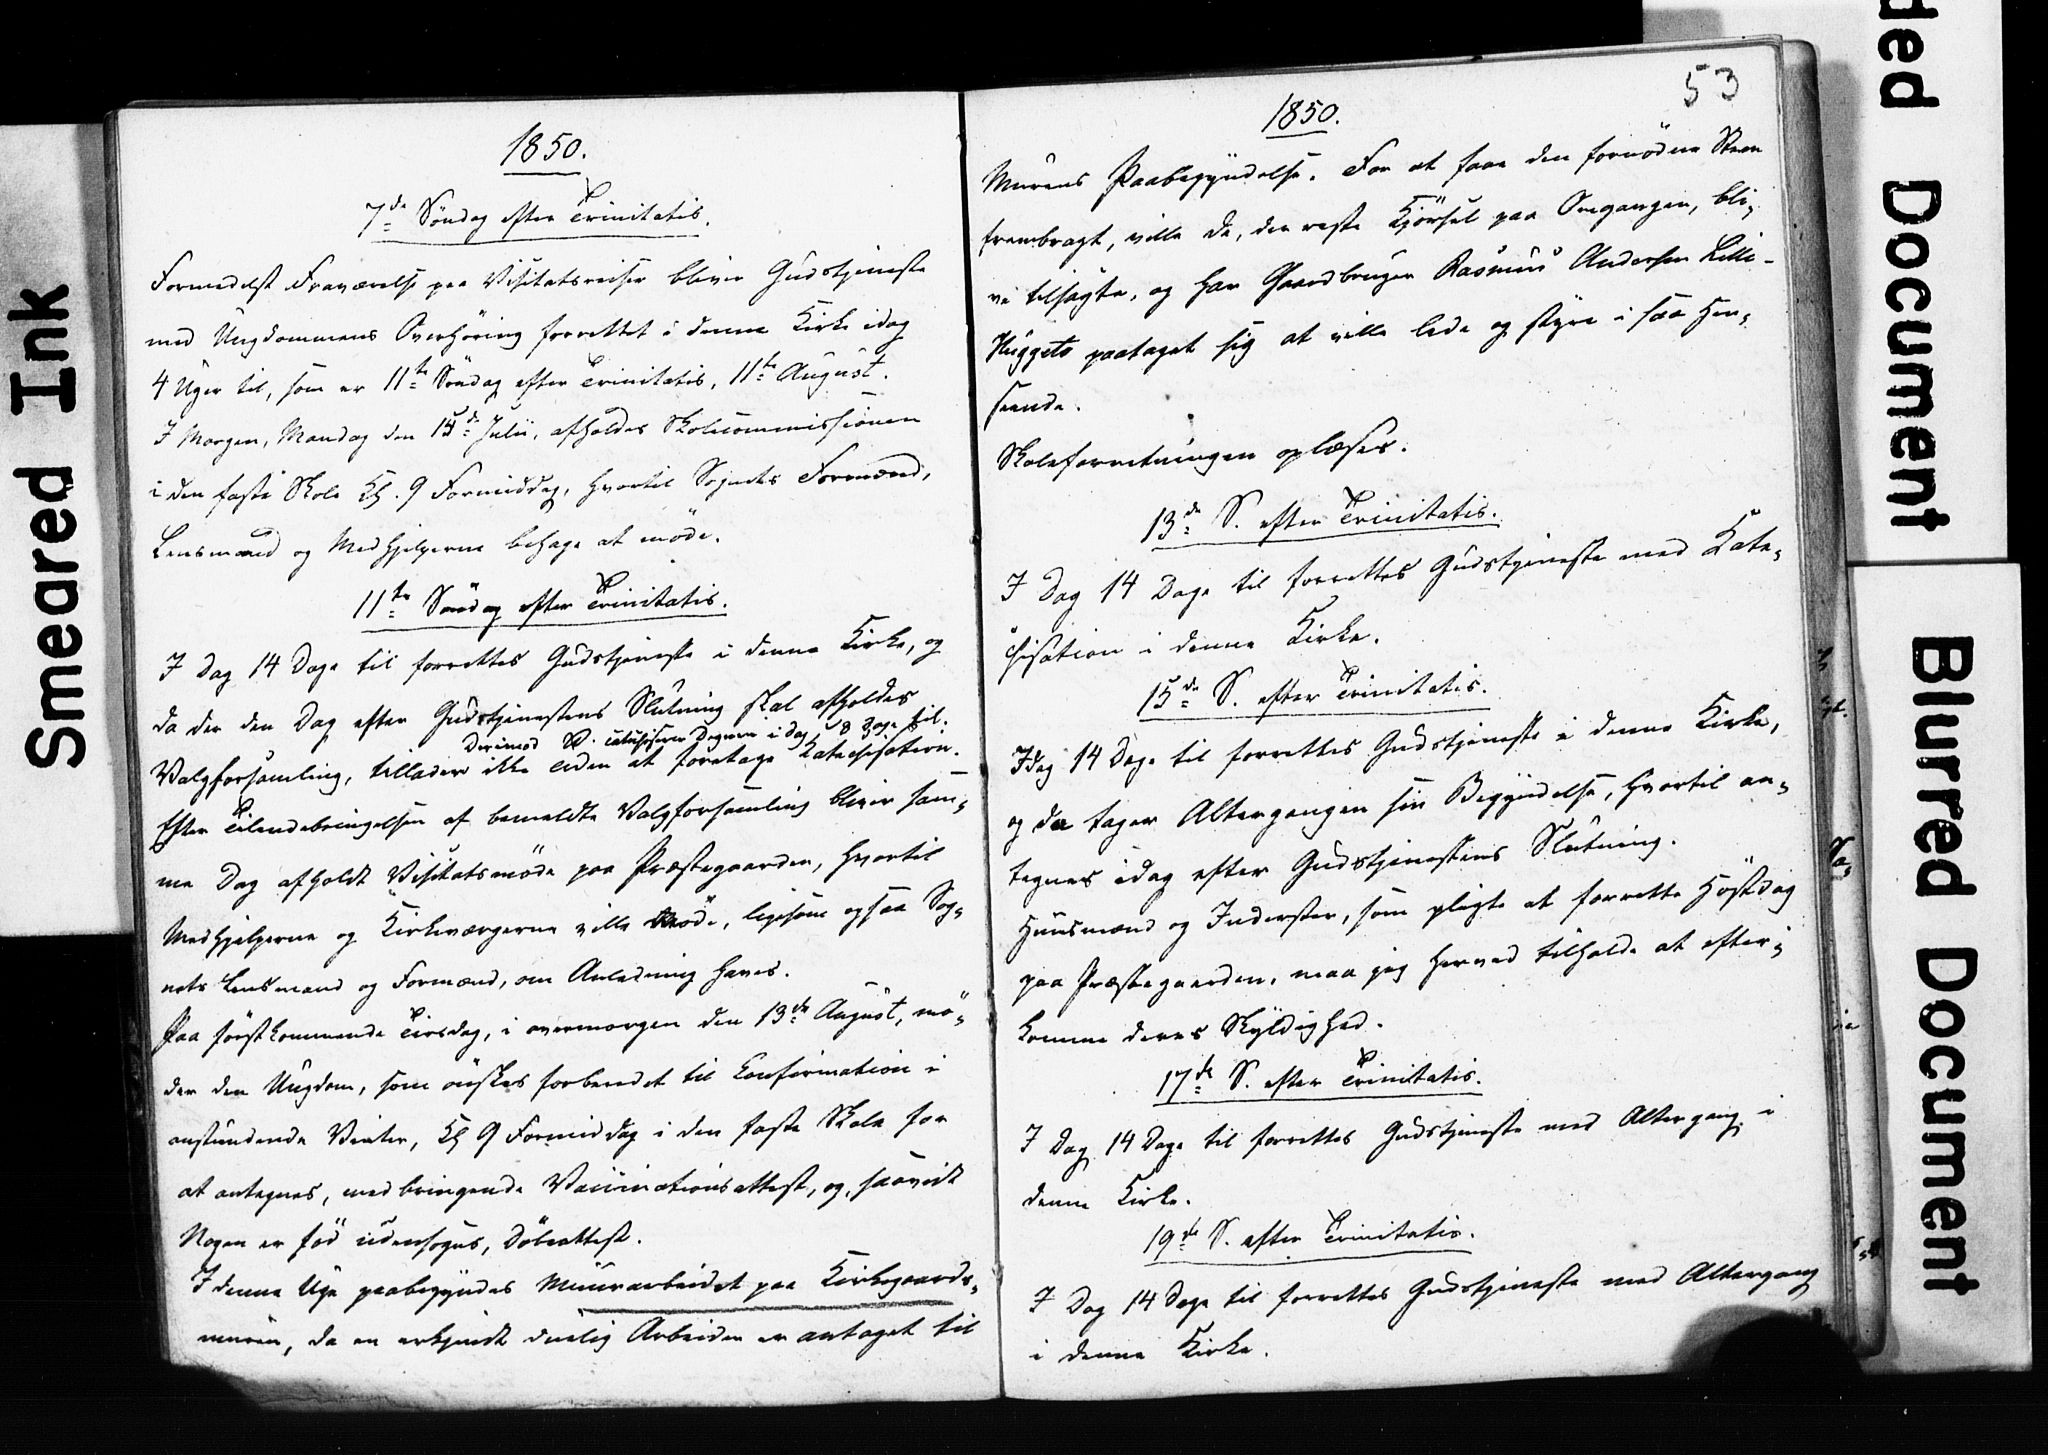 1850.
7de Söndag efter Trinitatis.
Formedelst Fraværelse paa Visitatsreiser bliver Gudstjeneste
med Ungdommens Overhöring forrettet i denne Kirke idag
4 Uger til, som er 11te Söndag efter Trinitatis, 11te August.
I Morgen, Mandag den 15de Julii, afholdes Skolecommissionen
i den faste Skole Kl. 9 Formiddag, hvortil Sognets Formænd,
Lensmand og Medhjelperne behage at möde.
11te Söndag efter Trinitatis.
I Dag 14 Dage til forrettes Gudstjeneste i denne Kirke, og
da der den Dag efter Gudstjenestens Slutning skal afholdes
Derimod catechiserer Degnen i dag 8 Dage til.
Valgforsamling, tillader ikke Tiden at foretage Katechisation.
Efter Tilendebringelsen af bemeldte Valgforsamling bliver sam-
me Dag afholdt Visitatsmöde paa Præstegaarden, hvortil
Medhjelperne og Kirkeværgerne ville möde, ligesom ogsaa Sog-
nets Lensmand og Formænd, om Anledning haves.
Paa förstkommende Tirsdag, i overmorgen den 13de August, mö-
der den Ungdom, som önskes forberedet til Confirmation i
anstundende Vinter, Kl 9 Formiddag i den faste Skole for
at antegnes, medbringende Vaccinationsattest, og, saavidt
Nogen er föd udensogns, Döbeattest.
I denne Uge paabegyndes Muurarbeidet paa Kirkegaards-
muren, da en erkjendt duelig Arbeider er antaget til
53
1850.
Murens Paabegyndelse. For at faae den fornödne Steen
frembragt, ville de, der reste Kjörsel paa Omgangen, bli-
ve tilsagte, og har Gaardbruger Rasmus Andersen Lille-
Huggets paataget sig at ville lede og styre i saa Hen-
seende.
Skoleforretningen oplæses.
13de S. efter Trinitatis.
I Dag 14 Dage til forrettes Gudstjeneste med Kate-
chisation i denne Kirke.
15de S. efter Trinitatis.
Idag 14 Dage til forrettes Gudstjeneste i denne Kirke,
og da tager Altergangen sin Begyndelse, hvortil an-
tegnes idag efter Gudstjenestens Slutning.
Huusmænd og Inderster, som pligte at forrette Höstdag
paa Præstegaarden, maa jeg herved tilholde at efter-
komme deres Skyldighed.
17de S. efter Trinitatis.
I Dag 14 Dage til forrettes Gudstjeneste med Altergang i
denne Kirke.
19de S. efter Trinitatis.
I Dag 14 Dage til forrettes Gudstjeneste med Altergang
i denne Kirke.
Smeared Ink
ded Document
Blurred Document